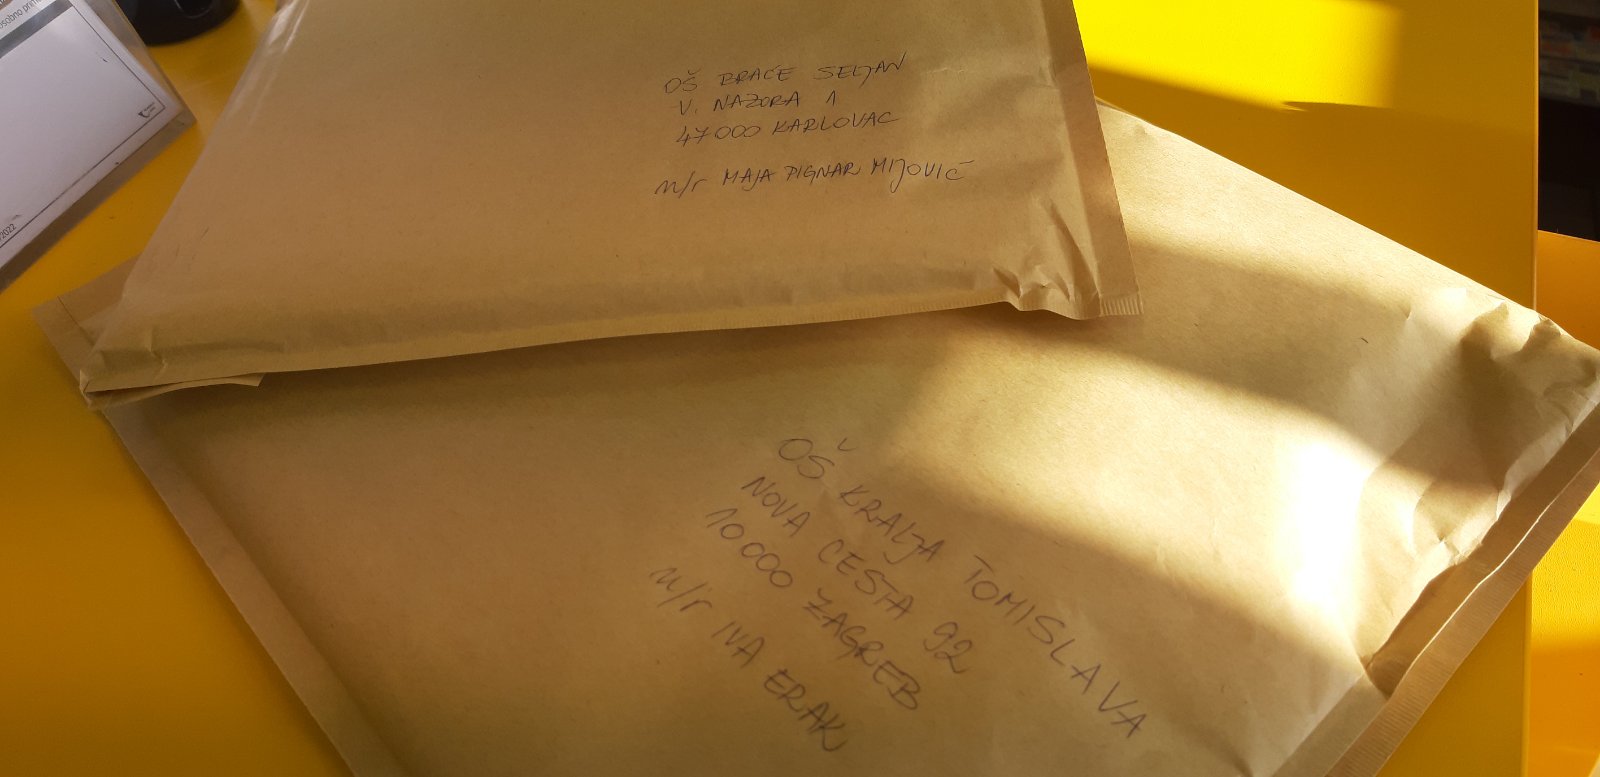 osobno
2022
OŠ BRAĆE SELJAN
V. NAZORA 1
47000 KARLOVAC
n/r MAJA PIGNAR MIJOVIĆ
OŠ KRALJA TOMISLAVA
NOVA CESTA 92
10000 ZAGREB
n/r IVA ERAK